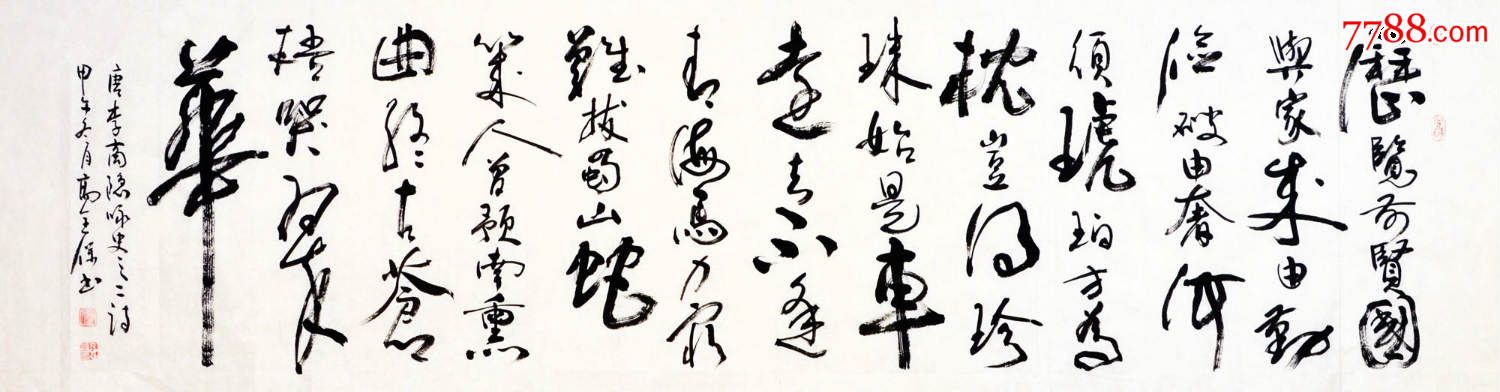 7788.com
歷覽前賢國
與家成由勤
儉破由奢何
須琥珀方為
枕豈得珍
珠始是車
運去不逢
青海馬力窮
難拔蜀山蛇
幾人曾預南熏
曲終古蒼
梧哭翠
華
唐李商隱咏史之二詩
甲午冬月高保書